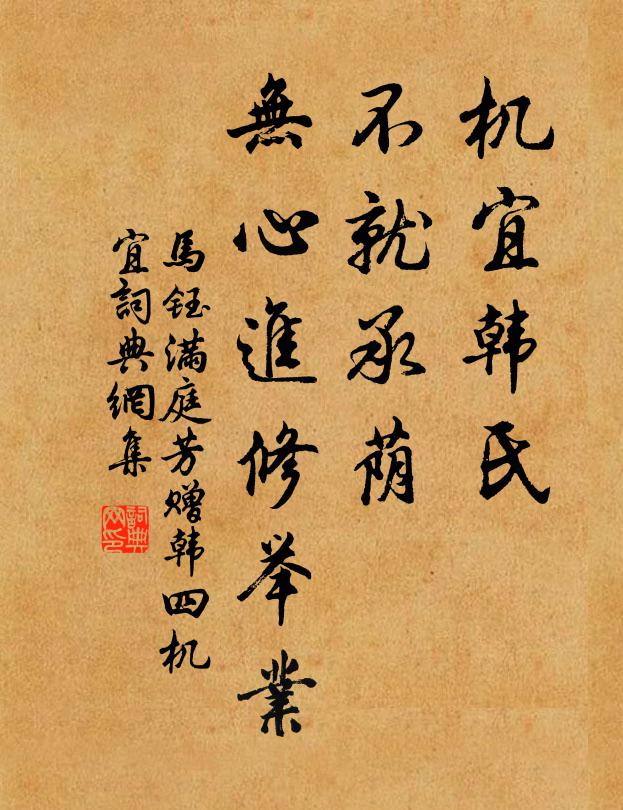 机宜韩氏
不就承荫
無心進修举業
馬钰满庭芳赠韩四机
宜詞典網集
詞典
网印